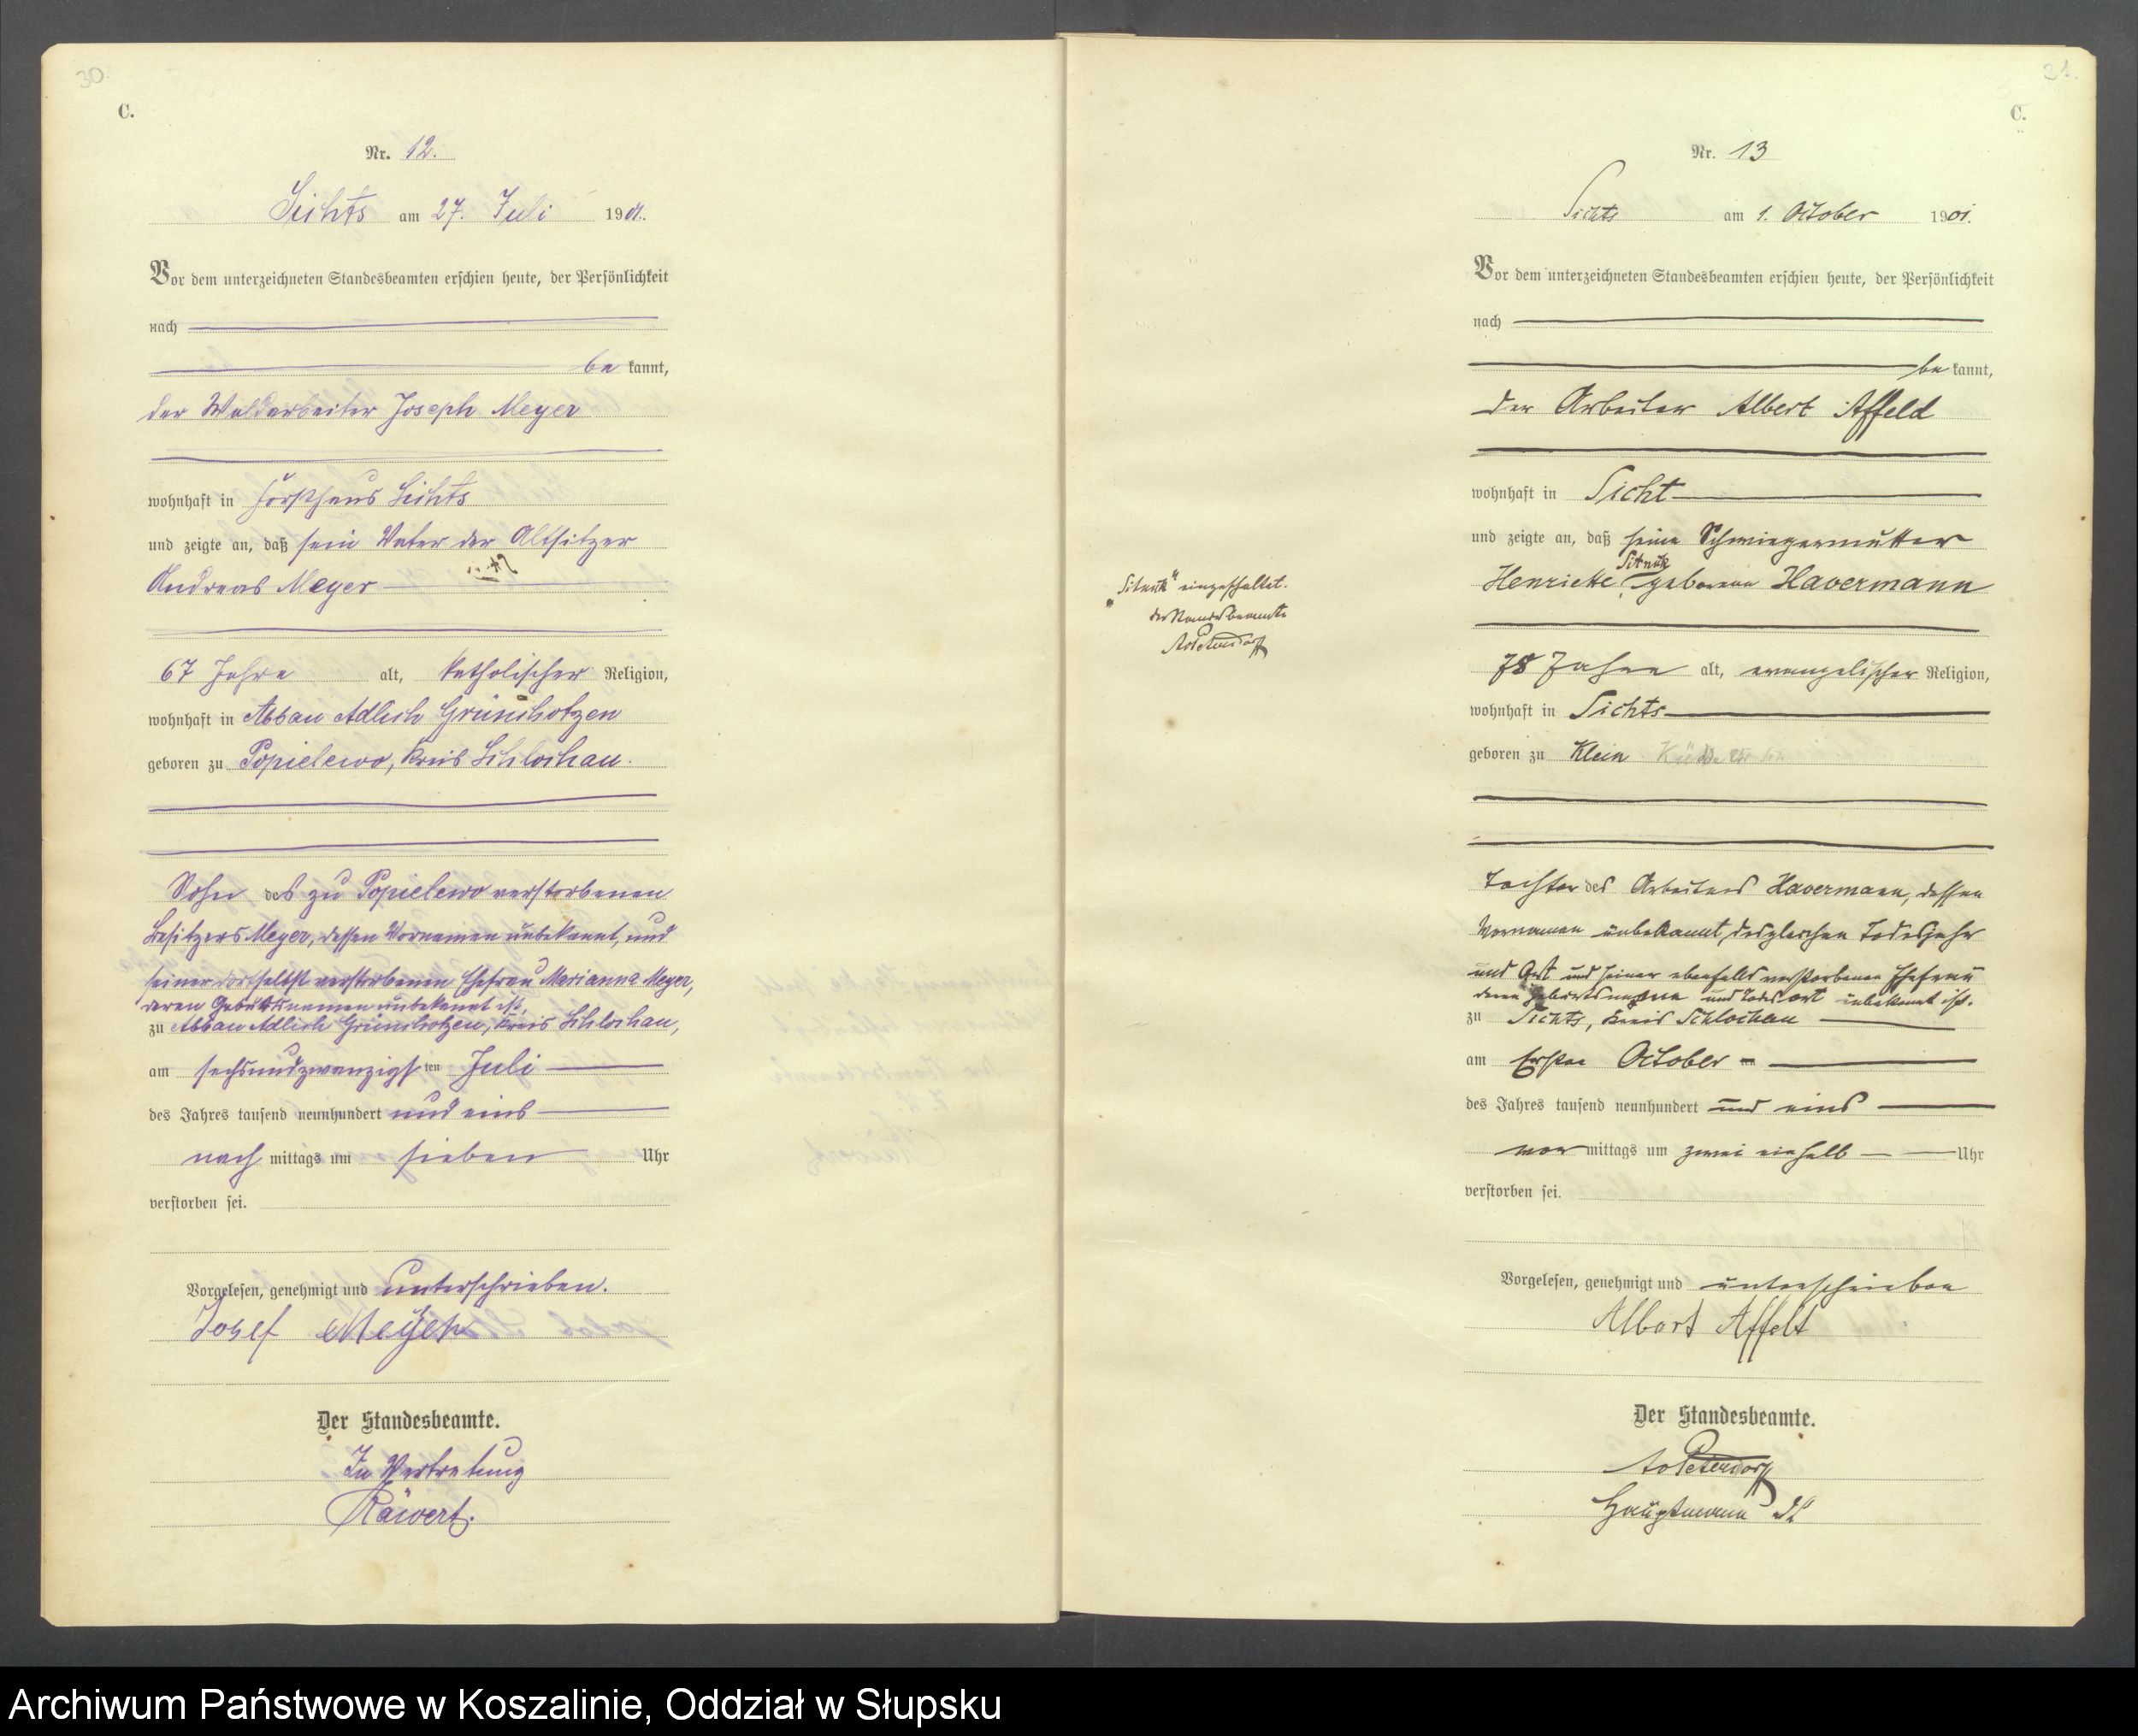 30.
C.
Nr. 12.
Sichts am 27. Juli 1901.
Vor dem unterzeichneten Standesbeamten erschien heute, der Persönlichkeit
nach
be kannt,
der Waldarbeiter Joseph Meyer
wohnhaft in Forsthaus Sichts
und zeigte an, daß sein Vater der Altsitzer
Andreas Meyer
67 Jahre alt, katholischer Religion,
wohnhaft in Abbau Adlich Grünchotzen
geboren zu Popielewo, Kreis Schlochau.
Sohn des zu Popielewo verstorbenen
Besitzers Meyer, dessen Vornamen unbekannt, und
seiner dortselbst verstorbenen Ehefrau Marianna Meyer,
deren Geburtsnamen unbekannt ist,
zu Abbau Adlich Grünchotzen, Kreis Schlochau,
am sechsundzwanzigsten Juli
des Jahres tausend neunhundert und eins
nach mittags um sieben Uhr
verstorben sei.
Vorgelesen, genehmigt und unterschrieben.
Josef Meyer
Der Standesbeamte.
In Vertretung
Räwert.
31.
C.
Nr. 13
Sichts am 1. October 1901.
Vor dem unterzeichneten Standesbeamten erschien heute, der Persönlichkeit
nach
be kannt,
der Arbeiter Albert Affeld
wohnhaft in Sicht
und zeigte an, daß seine Schwiegermutter
Henriette, geborene Havermann
78 Jahre alt, evangelischer Religion,
wohnhaft in Sichts
geboren zu Klein
Tochter des Arbeiters Havermann, dessen
Vornamen unbekannt, desgleichen Todesjahr
und Ort und seiner ebenfalls verstorbenen Ehefrau
deren Geburtsname und Todesort unbekannt ist.
zu Sichts, Kreis Schlochau
am Ersten October
des Jahres tausend neunhundert und eins
vor mittags um zwei einhalb Uhr
verstorben sei.
Vorgelesen, genehmigt und unterschrieben
Albert Affelt
Der Standesbeamte.
Hauptmann
eingeschaltet.
der Standesbeamte
Archiwum Państwowe w Koszalinie, Oddział w Słupsku